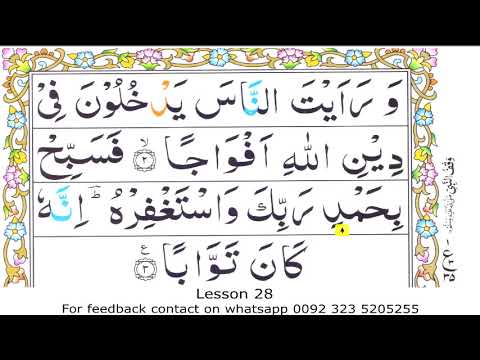 وَ رَاَيْتَ النَّاسَ يَدْخُلُوْنَ فِيْ
دِيْنِ اللّٰهِ اَفْوَاجًا ۙ﴿۲﴾ فَسَبِّحْ
بِحَمْدِ رَبِّكَ وَاسْتَغْفِرْهُ ؕ اِنَّهٗ
كَانَ تَوَّابًا ﴿۳﴾ ع
Lesson 28
For feedback contact on whatsapp 0092 323 5205255